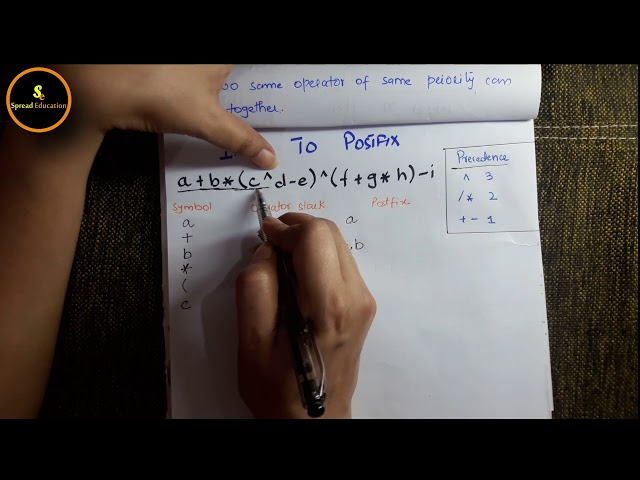 Spread Education
same operator of same periority can
together.
To POSTFIX
a+b*(c^d-e)^(f+g*h)-i
Precedence
^ 3
/* 2
+- 1
Symbol stack Postfix
a a
+
b b
*
(
c